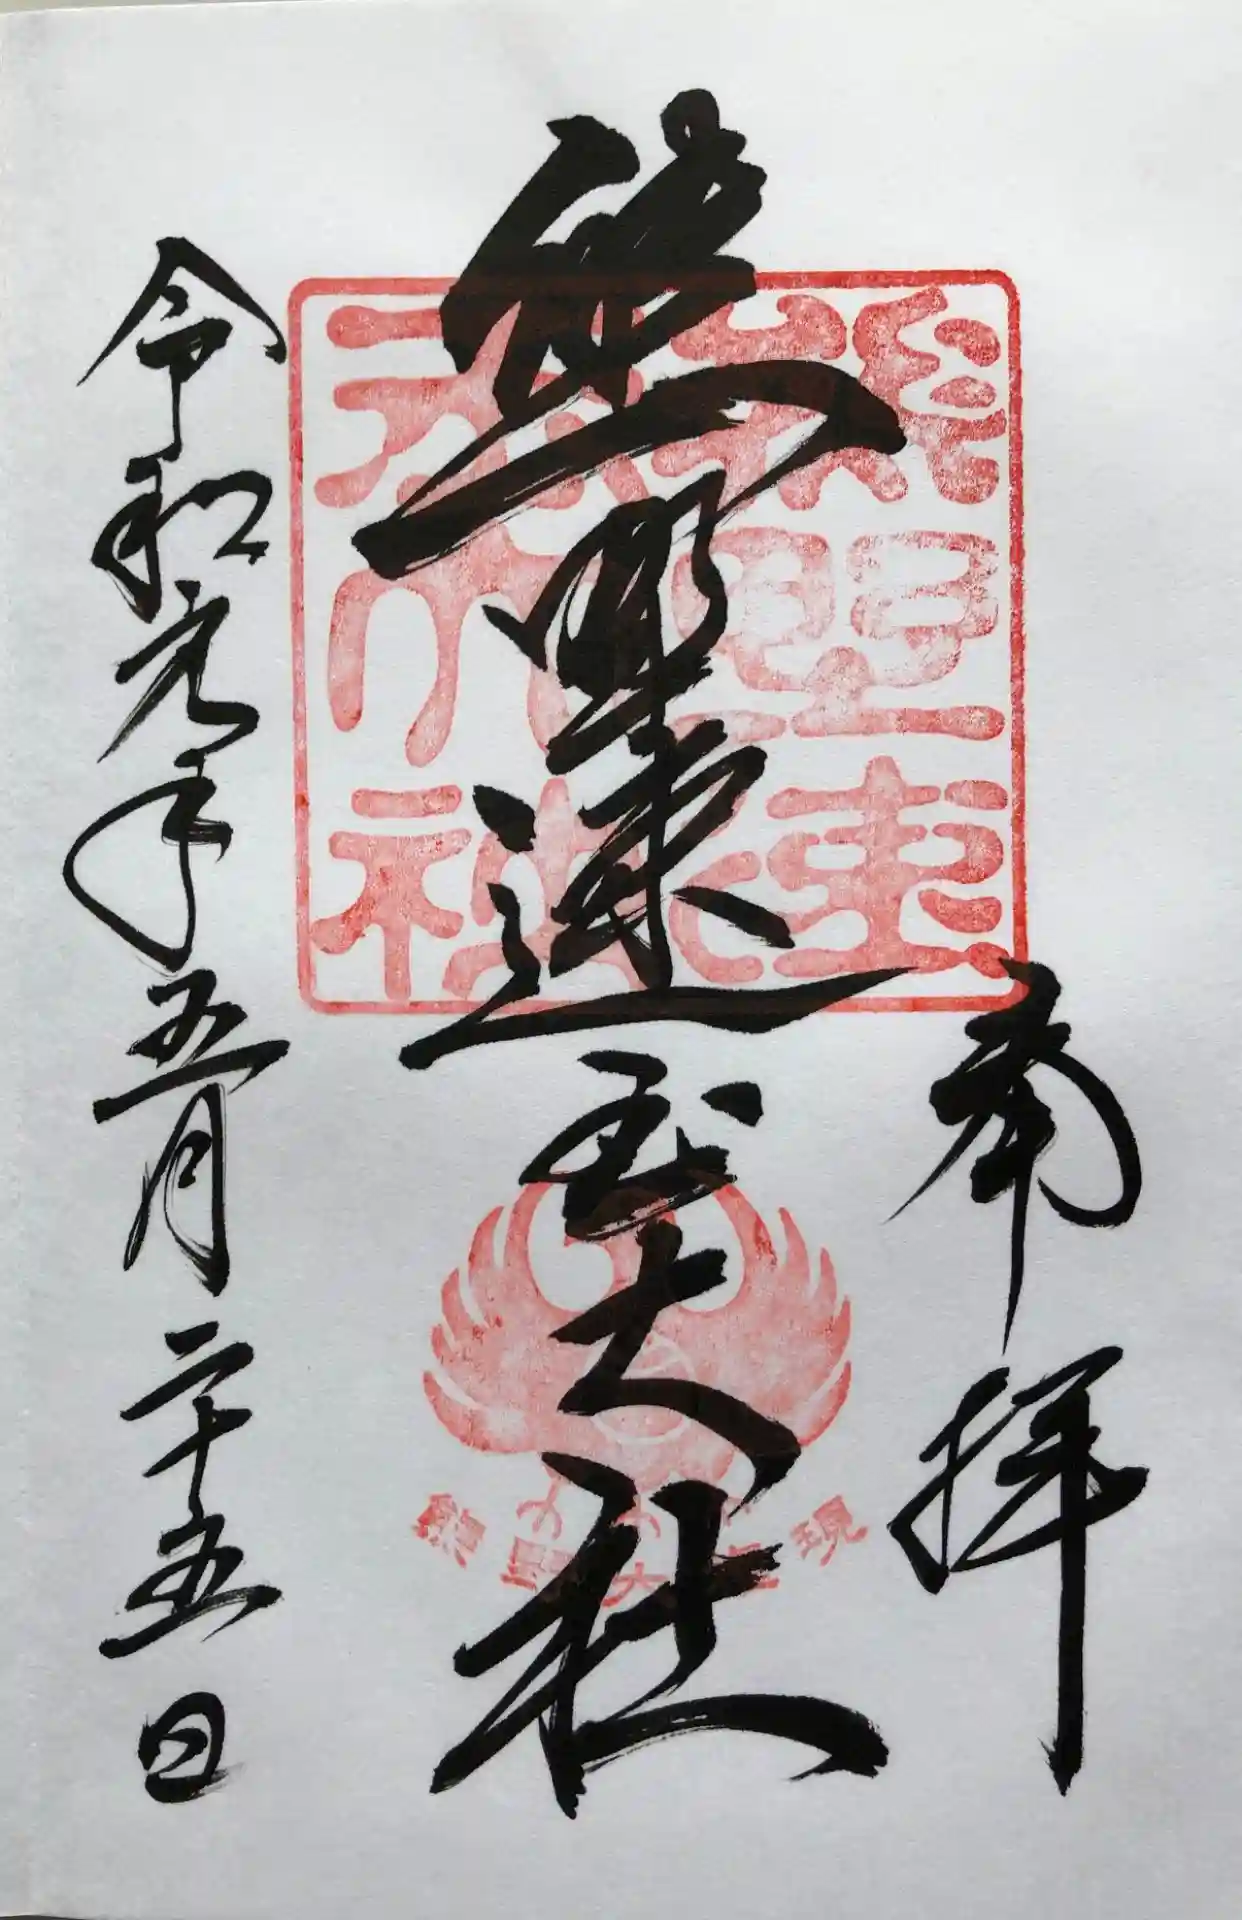 奉拝
熊野速玉大社
令和元年五月二十五日
熊野速玉大社
熊野大権現